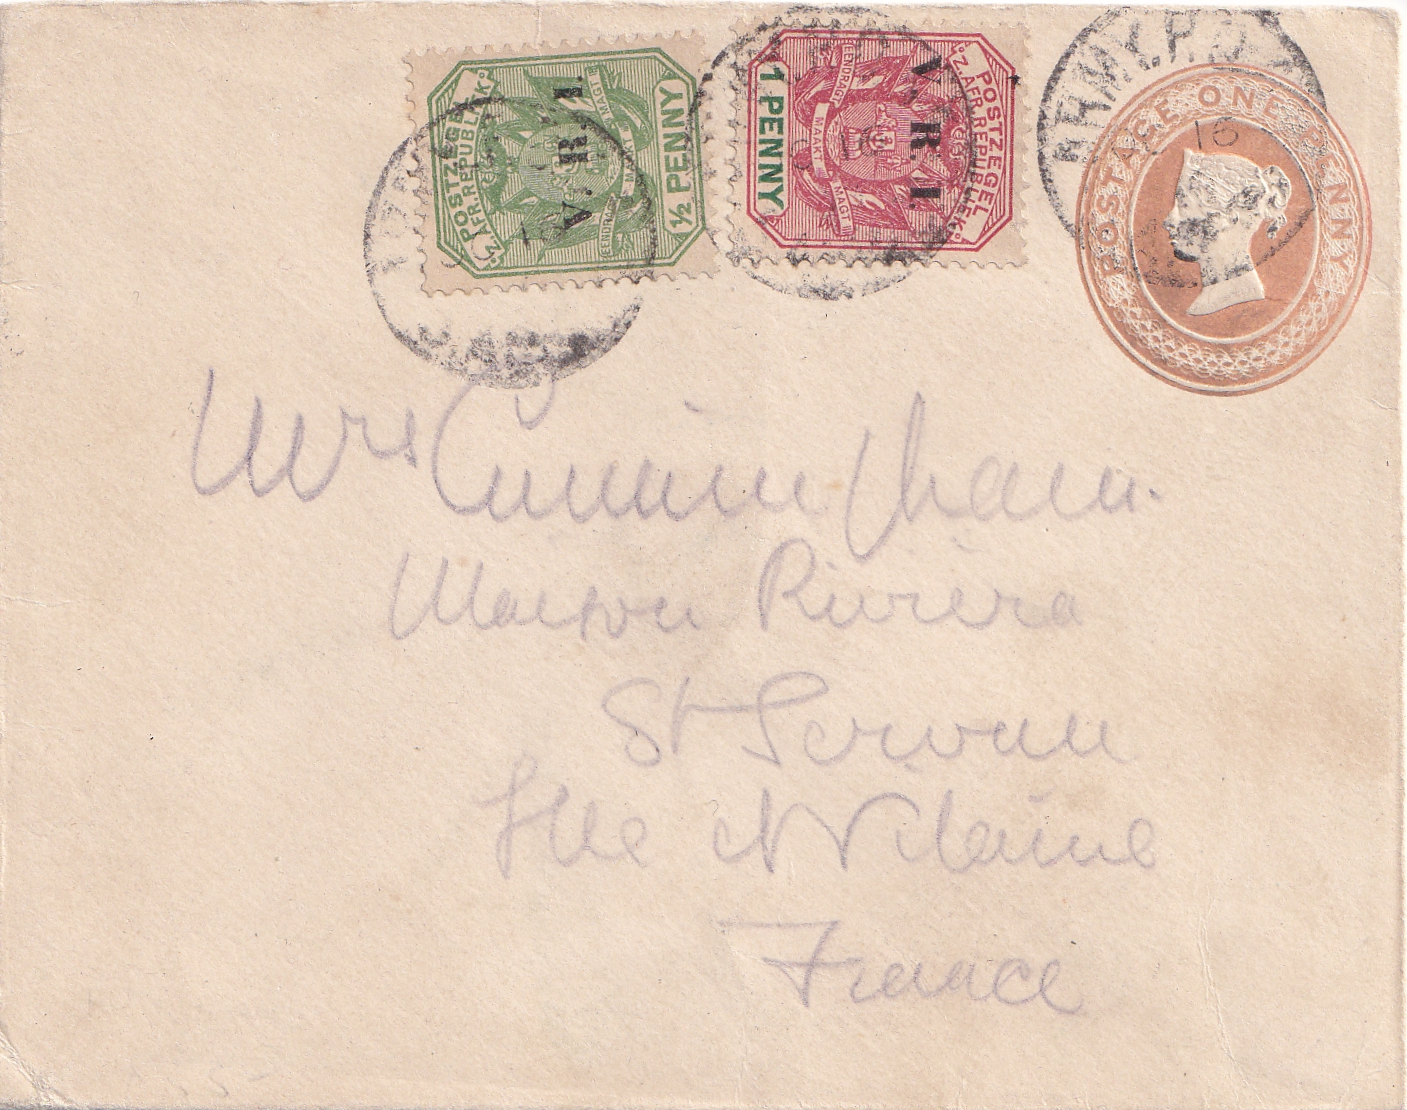 POSTZEGEL
Z. AFR. REPUBLIEK
EENDRAGT MAAKT MAGT
½ PENNY
V.R.I.
POSTZEGEL
Z. AFR. REPUBLIEK
EENDRAGT MAAKT MAGT
1 PENNY
V.R.I.
ARMY.P.O
16
POSTAGE ONE PENNY
Mrs Cuningham.
Maison Riviera
St Servan
Ille et Vilaine
France